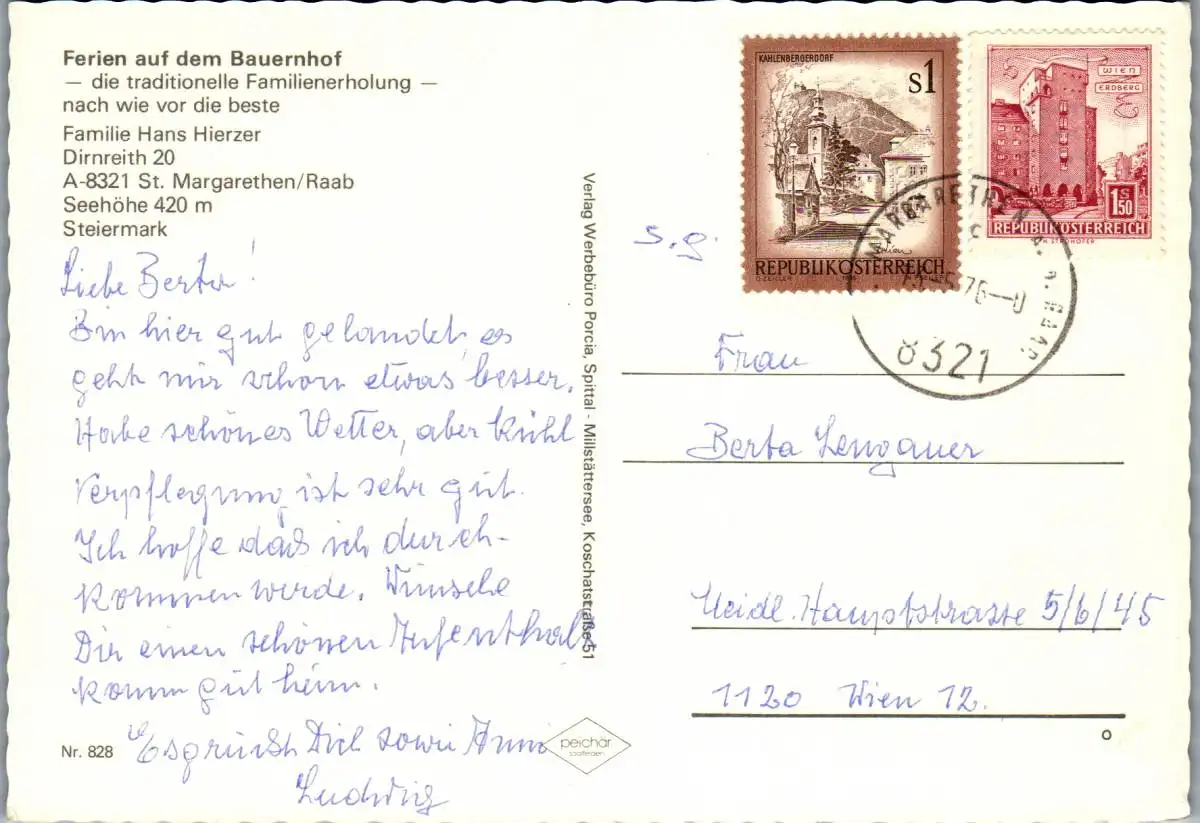 Ferien auf dem Bauernhof
— die traditionelle Familienerholung —
nach wie vor die beste
Familie Hans Hierzer
Dirnreith 20
A-8321 St. Margarethen/Raab
Seehöhe 420 m
Steiermark
Liebe Berta!
Bin hier gut gelandet, es
geht mir schon etwas besser.
Habe schönes Wetter, aber kühl
Verpflegung ist sehr gut.
Ich hoffe daß ich durch-
kommen werde. Wünsche
Dir einen schönen Aufenthalt
komm gut heim.
Es grüßt Dich sowie Anni
Ludwig
Nr. 828
peichär
saalfelden
Verlag Werbebüro Porcia, Spittal - Millstättersee, Koschatstraße 51
KAHLENBERGERDORF
S1
REPUBLIK ÖSTERREICH
WIEN
ERDBERG
1S50
REPUBLIK ÖSTERREICH
H. STROHOFER
MARGARETHEN A. D. RAAB
76
8321
S. g.
Frau
Berta Lengauer
Meidl. Hauptstrasse 5/6/45
1120 Wien 12.
o